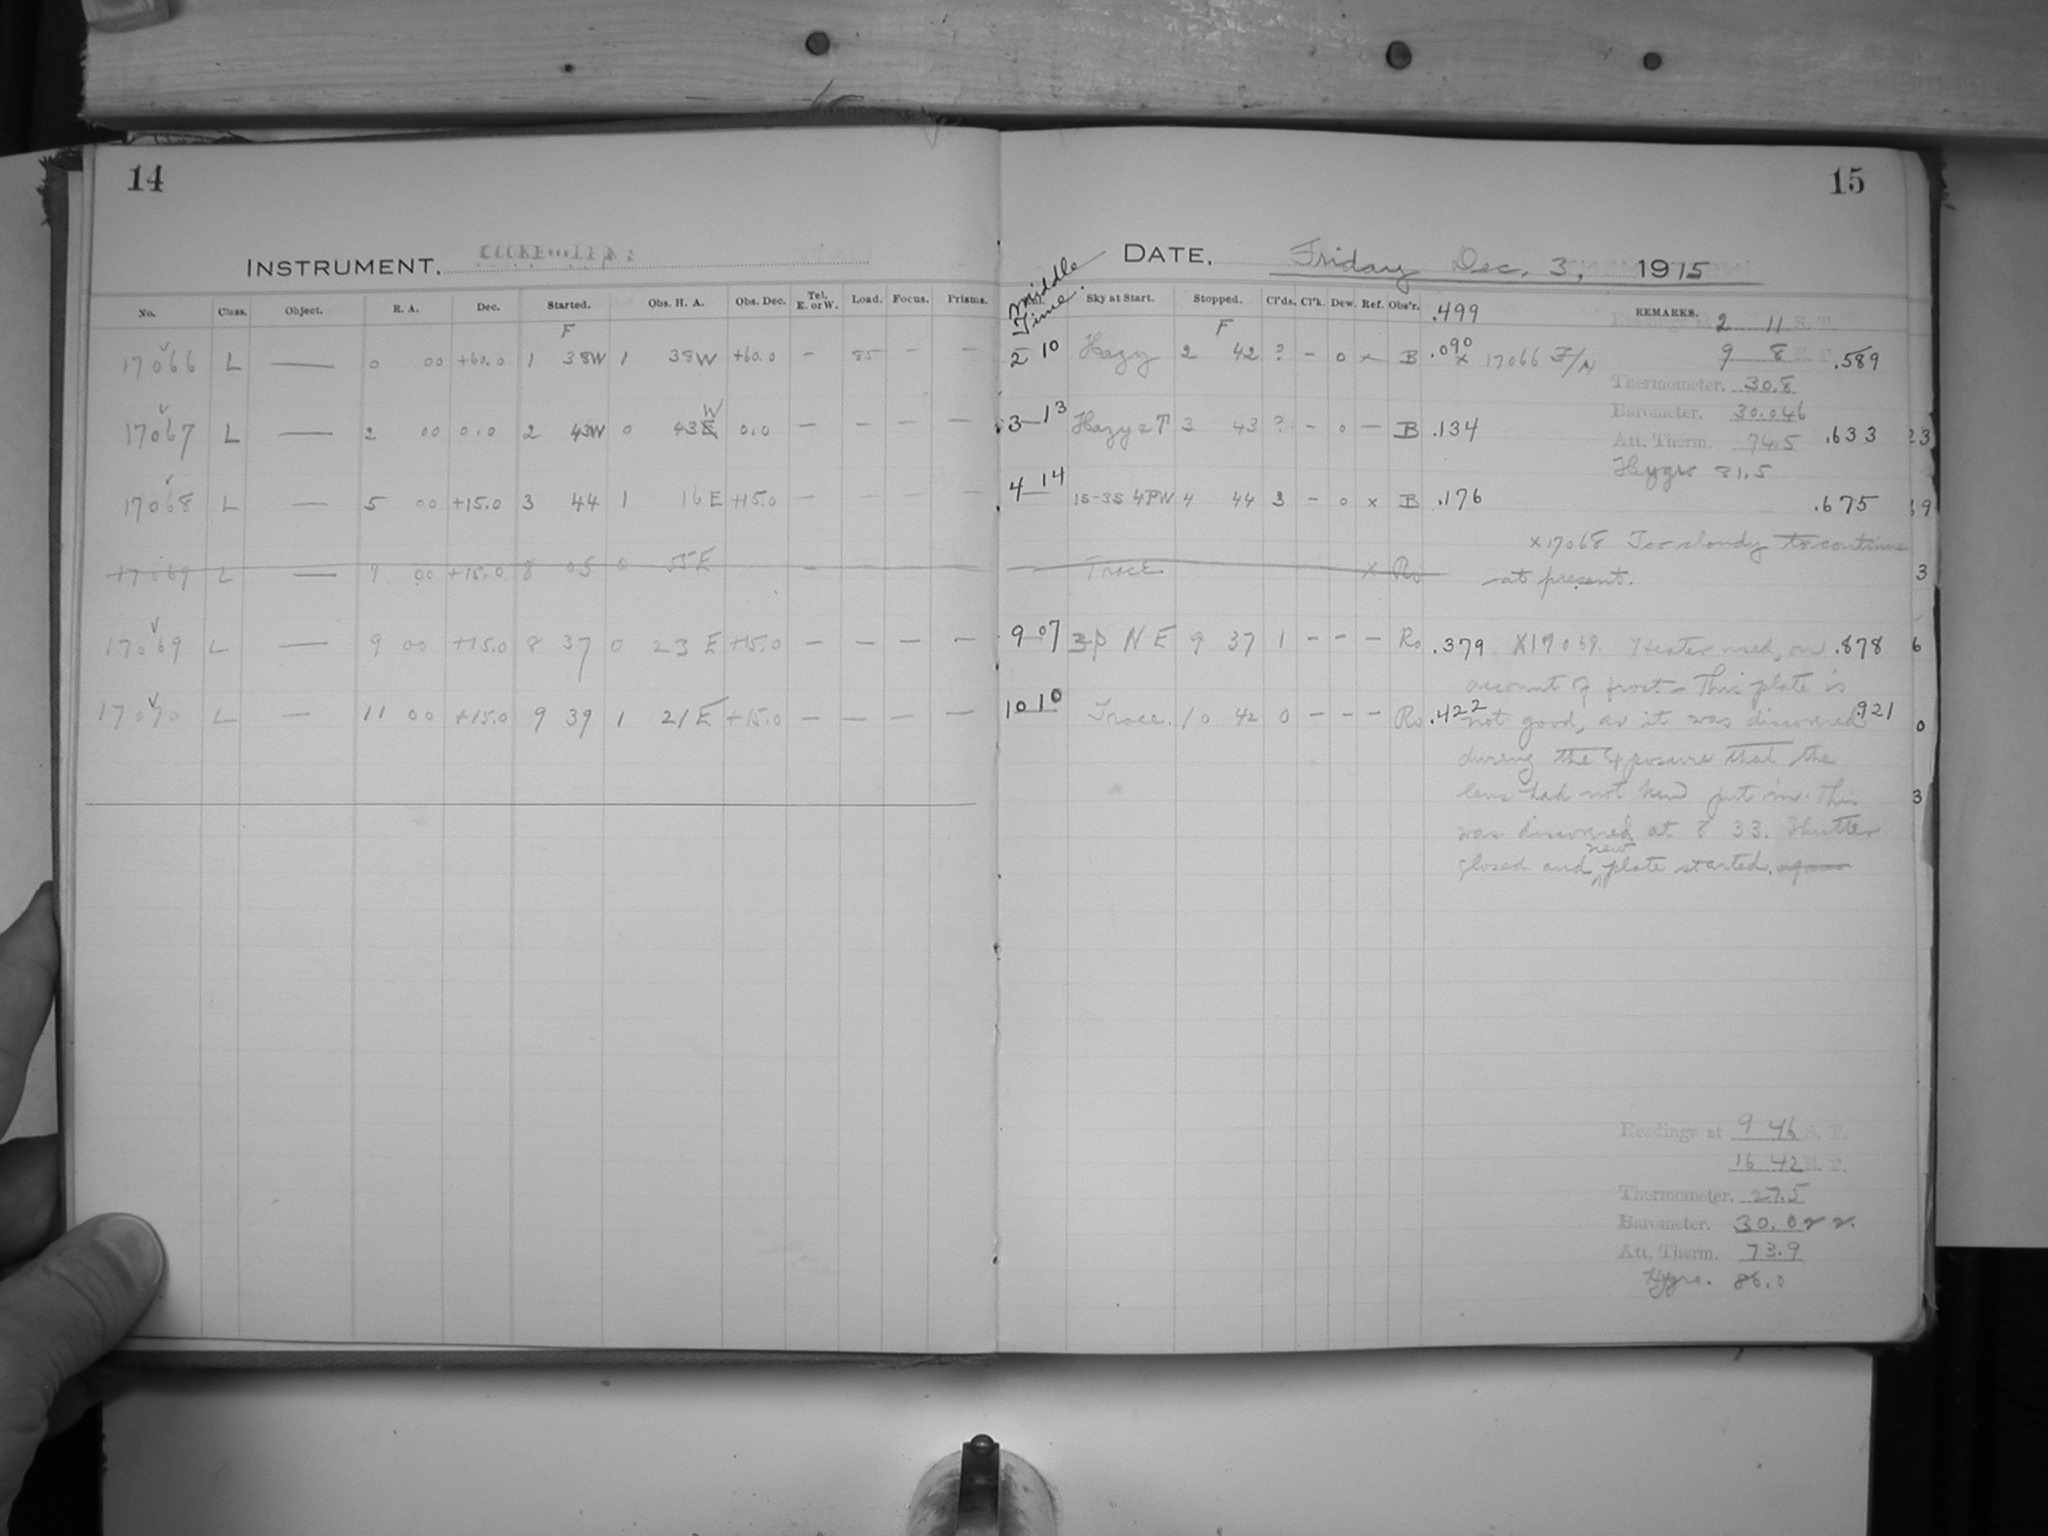 14
15
INSTRUMENT.
DATE. Friday Dec. 3, 1915
Middle Time.
No. Class. Object. R. A. Dec. Started. Obs. H. A. Obs. Dec. Tel. E. or W. Load. Focus. Prisms. Sky at Start. Stopped. Cl'ds. Cl'k. Dew. Ref. Obs'r. .499 REMARKS. 2 11 S. T.
F F
17066 L — 0 00 +60.0 1 38W 1 38W +60.0 — 85 — — 2 10 Hazy 2 42 ? — 0 x B .090 x 17066 F/M 9 8 .589
Thermometer. 30.8
Barometer. 30.046
17067 L — 2 00 0.0 2 43W 0 43 W 0.0 — — — — 3 13 Hazy & T 3 43 ? — 0 — B .134 Att. Therm. 74.5 .633 23
Hygro 81.5
17068 L — 5 00 +15.0 3 44 1 16E +15.0 — — — — 4 14 1S-3S 4PW 4 44 3 — 0 x B .176 .675 9
x17068 Too cloudy to continue
17069 L — 9 00 +15.0 8 05 0 55E — — Trace x Ro at present. 3
17069 L — 9 00 +15.0 8 37 0 23 E +15.0 — — — — 9 07 3P N E 9 37 1 — — — Ro .379 X17069. Heater used, on .878 6
account of frost - This plate is
17070 L — 11 00 +15.0 9 39 1 21E +15.0 — — — — 10 10 Trace. 10 42 0 — — — Ro .422 not good, as it was discovered .921 0
during the exposure that the
lens had not been put in. This 3
was discovered at 8 33. Shutter
closed and new plate started.
Readings at 9 46 S. T.
16 42 E. T.
Thermometer. 27.5
Barometer. 30.022
Att. Therm. 73.9
Hygro. 86.0